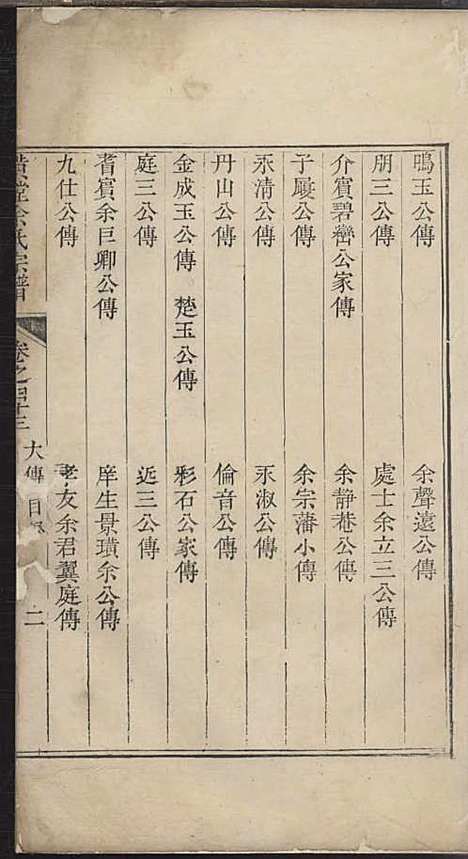 鳴玉公傳　余聲遠公傳
朋三公傳　處士余立三公傳
介賓碧巒公家傳　余靜巷公傳
子屢公傳　余宗藩小傳
永清公傳　永淑公傳
丹山公傳　倫音公傳
金成玉公傳　楚玉公傳　彩石公家傳
庭三公傳　近三公傳
耆賓余巨卿公傳　庠生景璜余公傳
九仕公傳　孝友余君翼庭傳
余氏宗譜　卷之　大傳　目　二